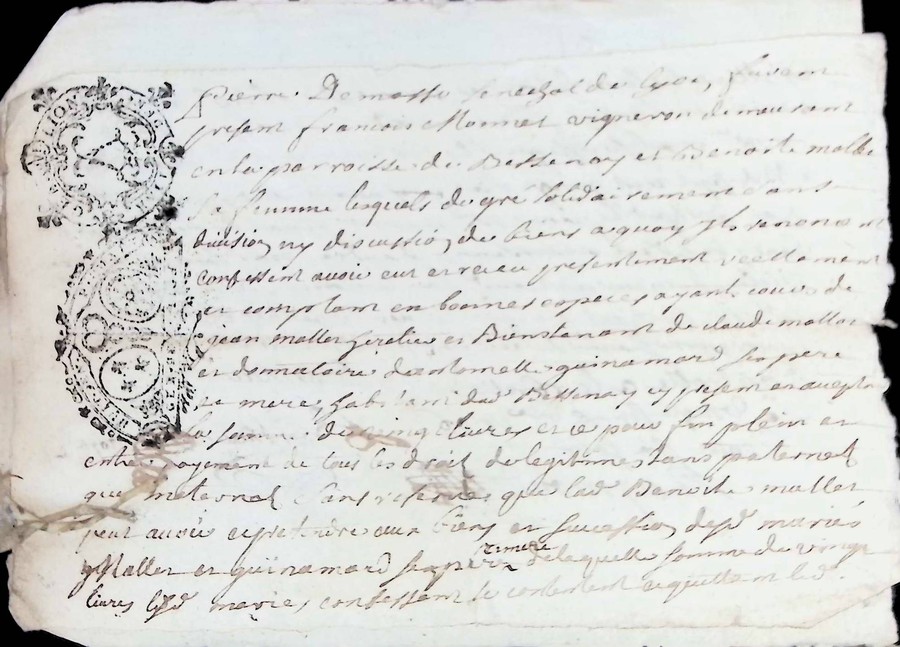 Pierre Demasso senechal de Lyon, furent
present francois Monnet vigneron demeurant
en la parroisse de Bessenay et Benoite mallet
sa femme lesquels de gré solidairement sans
division, ny discution, de biens a quoy ils renoncent
confessent avoir eut et receu presentement reellement
et comptant en bonnes especes ayant cours de
jean mallet heritier et Bienstenant de claude mallet
et donnataire dantomette guinamard ses pere
et mere, habitant dud Bessenay cy present et acceptant
la somme de vingt livres et ce pour fin plein et
entier payement de tous les droit de legitimes tans paternel
que maternel sans reserve que lad Benoite mallet
peut avoir et pretendre aux biens et succession, desd mariés
Mallet et guinamard ses pere et mere de laquelle somme de vingt
livres lesd mariés confessent se contentent et quittent led